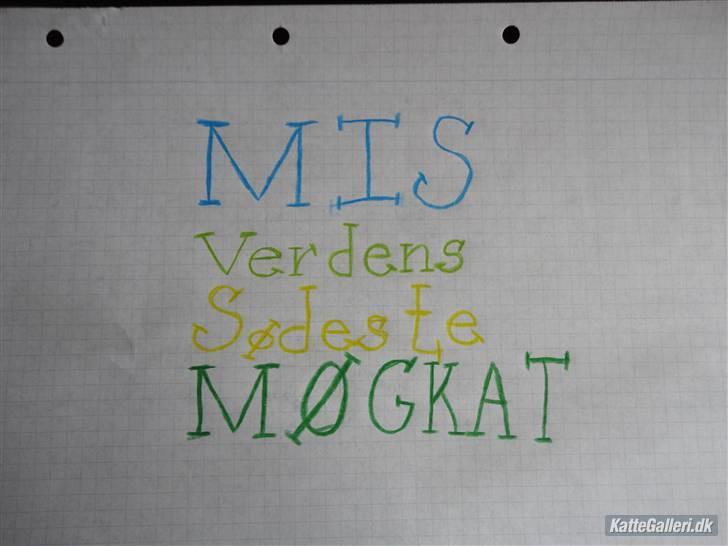 MIS
Verdens
Sødeste
MØGKAT
KatteGalleri.dk